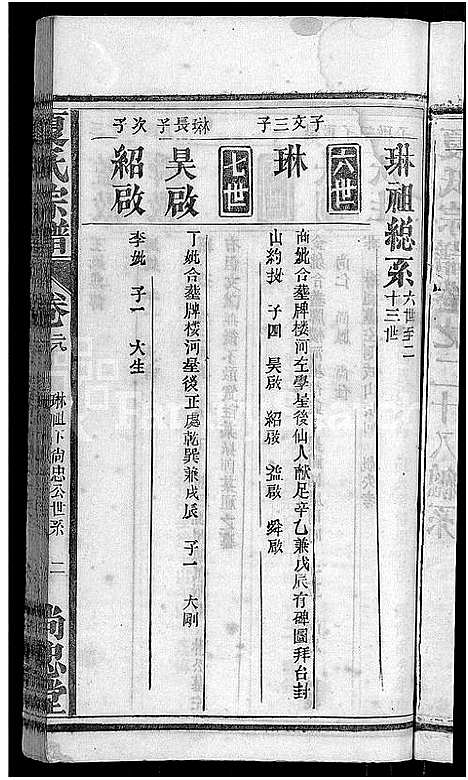 琳祖總系 六世至二十三世
六世
子文三子
琳
尚妣合塟牌楼河左學星後仙人献足辛乙兼戊辰有碑圖拜台封
山約扱 子四 昊啟 紹啟 益啟 舜啟
七世
琳長子
昊啟
丁妣合塟牌楼河星後正處乾巽兼戌辰 子一 大剛
次子
紹啟
李妣 子一 大生
夏氏宗譜 卷之六 琳祖下尚忠公世系 二 尚忠堂